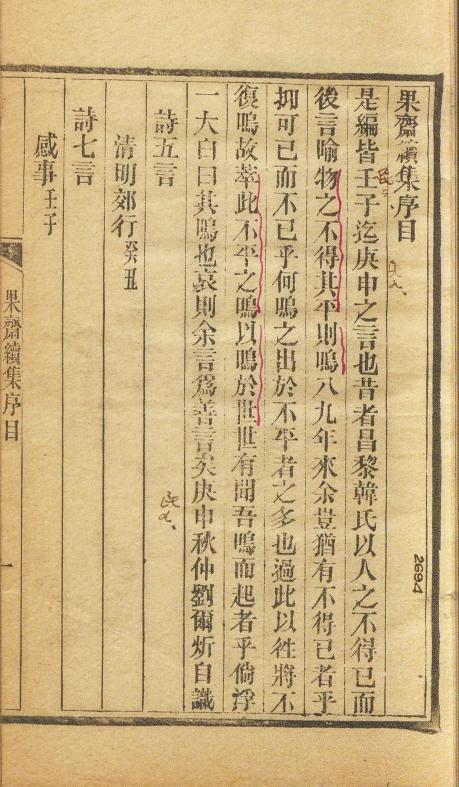 果齋續集序目
是編皆壬子迄庚申之言也昔者昌黎韓氏以人之不得已而
後言喻物之不得其平則鳴八九年來余豈猶有不得已者乎
抑可已而不已乎何鳴之出於不平者之多也過此以徃將不
復鳴故萃此不平之鳴以鳴於世世有聞吾鳴而起者乎倘浮
一大白曰其鳴也哀則余言爲善言矣庚申秋仲劉爾炘自識
詩五言
清明郊行癸丑
詩七言
感事壬子
果齋續集序目
一
2694